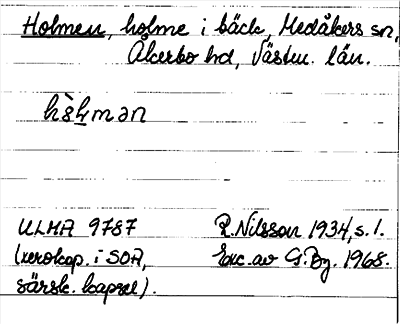 Holmen, holme i bäck, Medåkers sn,
Åkerbo hd, Västm. län.
hòḷmən
ULMA 9787 R. Nilsson 1934, s. 1.
(xerokop. i SOA, Exc. av G. By. 1968.
särsk. kapsel).